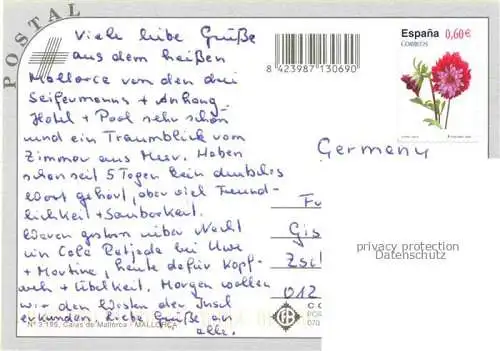 POSTAL
Viele liebe Grüße
aus dem heißen
Mallorca von den drei
Seifeumanns + Anhang.
Hotel + Pool sehr schön
und ein Traumblick vom
Zimmer aus Meer. Haben
schon seit 5 Tagen kein dunkles
Wort gehört, aber viel Freund-
lichkeit + Sauberkeit.
Waren gestern über Nacht
in Cala Ratjada bei Uwe
+ Martine, heute dafür Kopf-
weh + Übelkeit. Morgen wollen
wir den Westen der Insel
erkunden. Liebe Grüße an
alle.
Nº 3.195, Calas de Mallorca - MALLORCA
8 423987 130690
España 0,60€
CORREOS
Germany
Fu
Gis
Zsc
012
privacy protection
Datenschutz